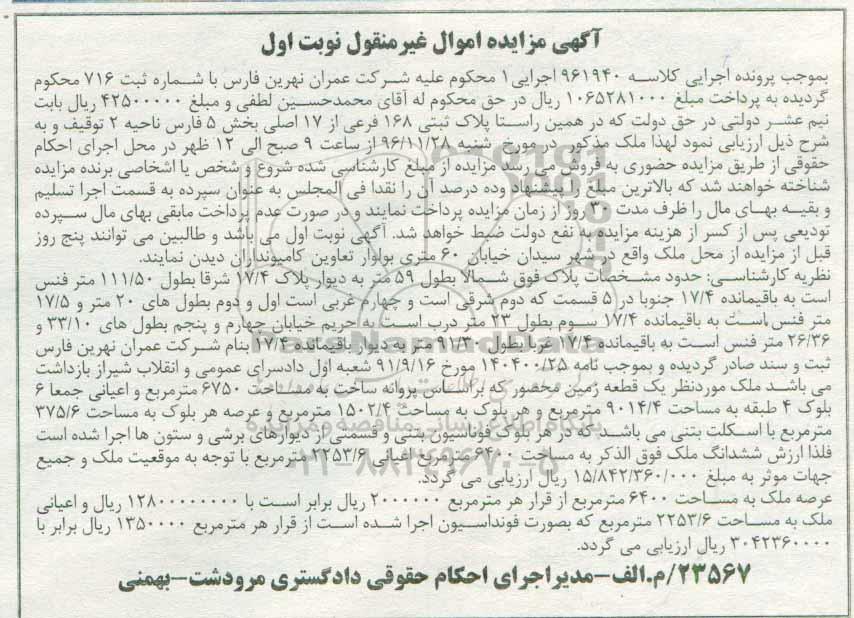 آگهی مزایده اموال غیرمنقول نوبت اول
بموجب پرونده اجرایی کلاسه ۹۶۱۹۴۰ اجرایی۱ محکوم علیه شرکت عمران نهرین فارس با شماره ثبت ۷۱۶ محکوم
گردیده به پرداخت مبلغ ۱۰۶۵۲۸۱۰۰۰ ریال در حق محکوم له آقای محمدحسین لطفی و مبلغ ۴۲۵۰۰۰۰۰ ریال بابت
نیم عشر دولتی در حق دولت که در همین راستا پلاک ثبتی ۱۶۸ فرعی از ۱۷ اصلی بخش ۵ فارس ناحیه ۲ توقیف و به
شرح ذیل ارزیابی نمود لهذا ملک مذکور در مورخ شنبه ۹۶/۱۱/۲۸ از ساعت ۹ صبح الی ۱۲ ظهر در محل اجرای احکام
حقوقی از طریق مزایده حضوری به فروش می رسد مزایده از مبلغ کارشناسی شده شروع و شخص یا اشخاصی برنده مزایده
شناخته خواهند شد که بالاترین مبلغ را پیشنهاد وده درصد آن را نقدا فی المجلس به عنوان سپرده به قسمت اجرا تسلیم
و بقیه بهای مال را ظرف مدت ۳۰ روز از زمان مزایده پرداخت نمایند و در صورت عدم پرداخت مابقی بهای مال سپرده
تودیعی پس از کسر از هزینه مزایده به نفع دولت ضبط خواهد شد. آگهی نوبت اول می باشد و طالبین می توانند پنج روز
قبل از مزایده از محل ملک واقع در شهر سیدان خیابان ۶۰ متری بولوار تعاوین کامیونداران دیدن نمایند.
نظریه کارشناسی: حدود مشخصات پلاک فوق شمالا بطول ۵۹ متر به دیوار پلاک ۱۷/۴ شرقا بطول ۱۱۱/۵۰ متر فنس
است به باقیمانده ۱۷/۴ جنوبا در ۵ قسمت که دوم شرقی است و چهارم غربی است اول و دوم بطول های ۲۰ متر و ۱۷/۵
متر فنس است به باقیمانده ۱۷/۴ سوم بطول ۲۳ متر درب است به حریم خیابان چهارم و پنجم بطول های ۳۳/۱۰ و
۲۶/۳۶ متر فنس است به باقیمانده ۱۷/۴ غربا بطول ۹۱/۳۰ متر به دیوار باقیمانده ۱۷/۴ بنام شرکت عمران نهرین فارس
ثبت و سند صادر گردیده و بموجب نامه ۱۴۰۴۰۰/۲۵ مورخ ۹۱/۹/۱۶ شعبه اول دادسرای عمومی و انقلاب شیراز بازداشت
می باشد ملک موردنظر یک قطعه زمین محصور که براساس پروانه ساخت به مساحت ۶۷۵۰ مترمربع و اعیانی جمعا ۶
بلوک ۴ طبقه به مساحت ۹۰۱۴/۴ مترمربع و هر بلوک به مساحت ۱۵۰۲/۴ مترمربع و عرصه هر بلوک به مساحت ۳۷۵/۶
مترمربع با اسکلت بتنی می باشد که در هر بلوک فوناسیون بتنی و قسمتی از دیوارهای برشی و ستون ها اجرا شده است
فلذا ارزش ششدانگ ملک فوق الذکر به مساحت ۶۴۰۰ مترمربع اعیانی ۲۲۵۳/۶ مترمربع با توجه به موقعیت ملک و جمیع
جهات موثر به مبلغ ۱۵/۸۴۲/۳۶۰/۰۰۰ ریال ارزیابی می گردد.
عرصه ملک به مساحت ۶۴۰۰ مترمربع از قرار هر مترمربع ۲۰۰۰۰۰۰ ریال برابر است با ۱۲۸۰۰۰۰۰۰۰۰ ریال و اعیانی
ملک به مساحت ۲۲۵۳/۶ مترمربع که بصورت فونداسیون اجرا شده است از قرار هر مترمربع ۱۳۵۰۰۰۰ ریال برابر با
۳۰۴۲۳۶۰۰۰۰ ریال ارزیابی می گردد.
۲۳۵۶۷/م.الف-مدیراجرای احکام حقوقی دادگستری مرودشت-بهمنی